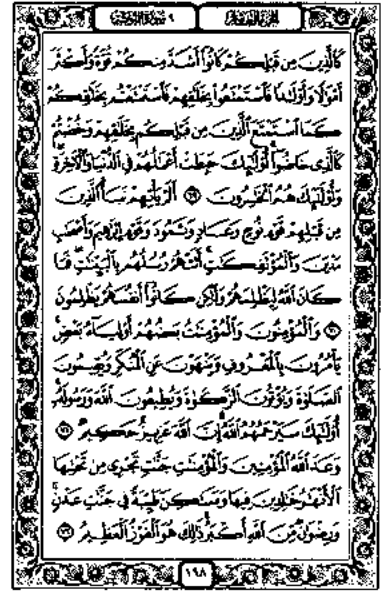 الجزء العاشر
٩ سورة التوبة
كَالَّذِينَ مِن قَبْلِكُمْ كَانُوٓا۟ أَشَدَّ مِنكُمْ قُوَّةً وَأَكْثَرَ
أَمْوَٰلًا وَأَوْلَٰدًا فَٱسْتَمْتَعُوا۟ بِخَلَٰقِهِمْ فَٱسْتَمْتَعْتُم بِخَلَٰقِكُمْ
كَمَا ٱسْتَمْتَعَ ٱلَّذِينَ مِن قَبْلِكُم بِخَلَٰقِهِمْ وَخُضْتُمْ
كَٱلَّذِى خَاضُوٓا۟ أُو۟لَٰٓئِكَ حَبِطَتْ أَعْمَٰلُهُمْ فِى ٱلدُّنْيَا وَٱلْـَٔاخِرَةِ
وَأُو۟لَٰٓئِكَ هُمُ ٱلْخَٰسِرُونَ ٦٩ أَلَمْ يَأْتِهِمْ نَبَأُ ٱلَّذِينَ
مِن قَبْلِهِمْ قَوْمِ نُوحٍ وَعَادٍ وَثَمُودَ وَقَوْمِ إِبْرَٰهِيمَ وَأَصْحَٰبِ
مَدْيَنَ وَٱلْمُؤْتَفِكَٰتِ أَتَتْهُمْ رُسُلُهُم بِٱلْبَيِّنَٰتِ فَمَا
كَانَ ٱللَّهُ لِيَظْلِمَهُمْ وَلَٰكِن كَانُوٓا۟ أَنفُسَهُمْ يَظْلِمُونَ
٧٠ وَٱلْمُؤْمِنُونَ وَٱلْمُؤْمِنَٰتُ بَعْضُهُمْ أَوْلِيَآءُ بَعْضٍ
يَأْمُرُونَ بِٱلْمَعْرُوفِ وَيَنْهَوْنَ عَنِ ٱلْمُنكَرِ وَيُقِيمُونَ
ٱلصَّلَوٰةَ وَيُؤْتُونَ ٱلزَّكَوٰةَ وَيُطِيعُونَ ٱللَّهَ وَرَسُولَهُۥٓ
أُو۟لَٰٓئِكَ سَيَرْحَمُهُمُ ٱللَّهُ إِنَّ ٱللَّهَ عَزِيزٌ حَكِيمٌ ٧١
وَعَدَ ٱللَّهُ ٱلْمُؤْمِنِينَ وَٱلْمُؤْمِنَٰتِ جَنَّٰتٍ تَجْرِى مِن تَحْتِهَا
ٱلْأَنْهَٰرُ خَٰلِدِينَ فِيهَا وَمَسَٰكِنَ طَيِّبَةً فِى جَنَّٰتِ عَدْنٍ
وَرِضْوَٰنٌ مِّنَ ٱللَّهِ أَكْبَرُ ذَٰلِكَ هُوَ ٱلْفَوْزُ ٱلْعَظِيمُ ٧٢
١٦٨